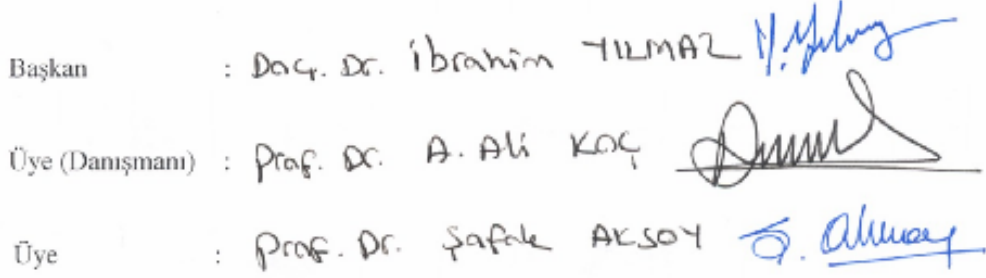 Başkan : Doç. Dr. İbrahim YILMAZ
Üye (Danışmanı) : Prof. Dr. A. Ali KOÇ
Üye : Prof. Dr. Şafak AKSOY